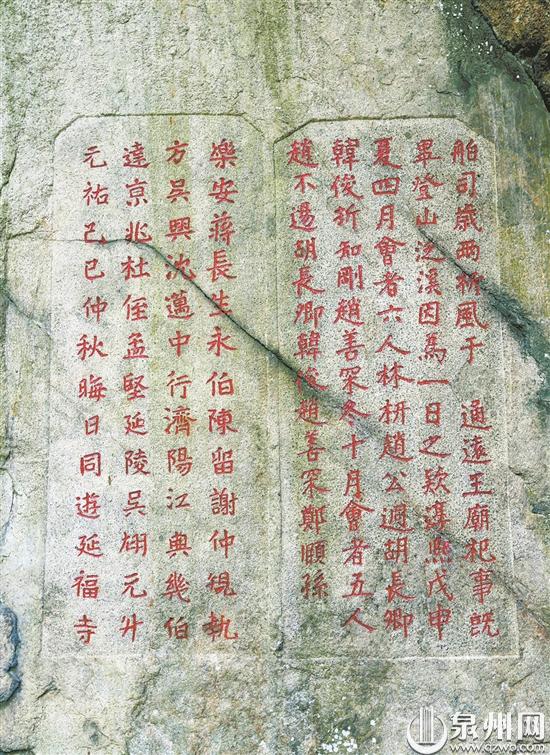 舶司歲兩祈風于 通遠王廟祀事旣
畢登山泛溪因爲一日之欵淳熙戊申
夏四月會者六人林枅趙公逈胡長卿
韓俊折知剛趙善冞冬十月會者五人
趙不逷胡長卿韓俊趙善冞鄭頤孫
樂安蔣長生永伯陳留謝仲規執
方吳興沈邁中行濟陽江典幾伯
達京兆杜侄孟堅延陵吳翃元升
元祐己巳仲秋晦日同遊延福寺
泉州网
www.qzwb.com